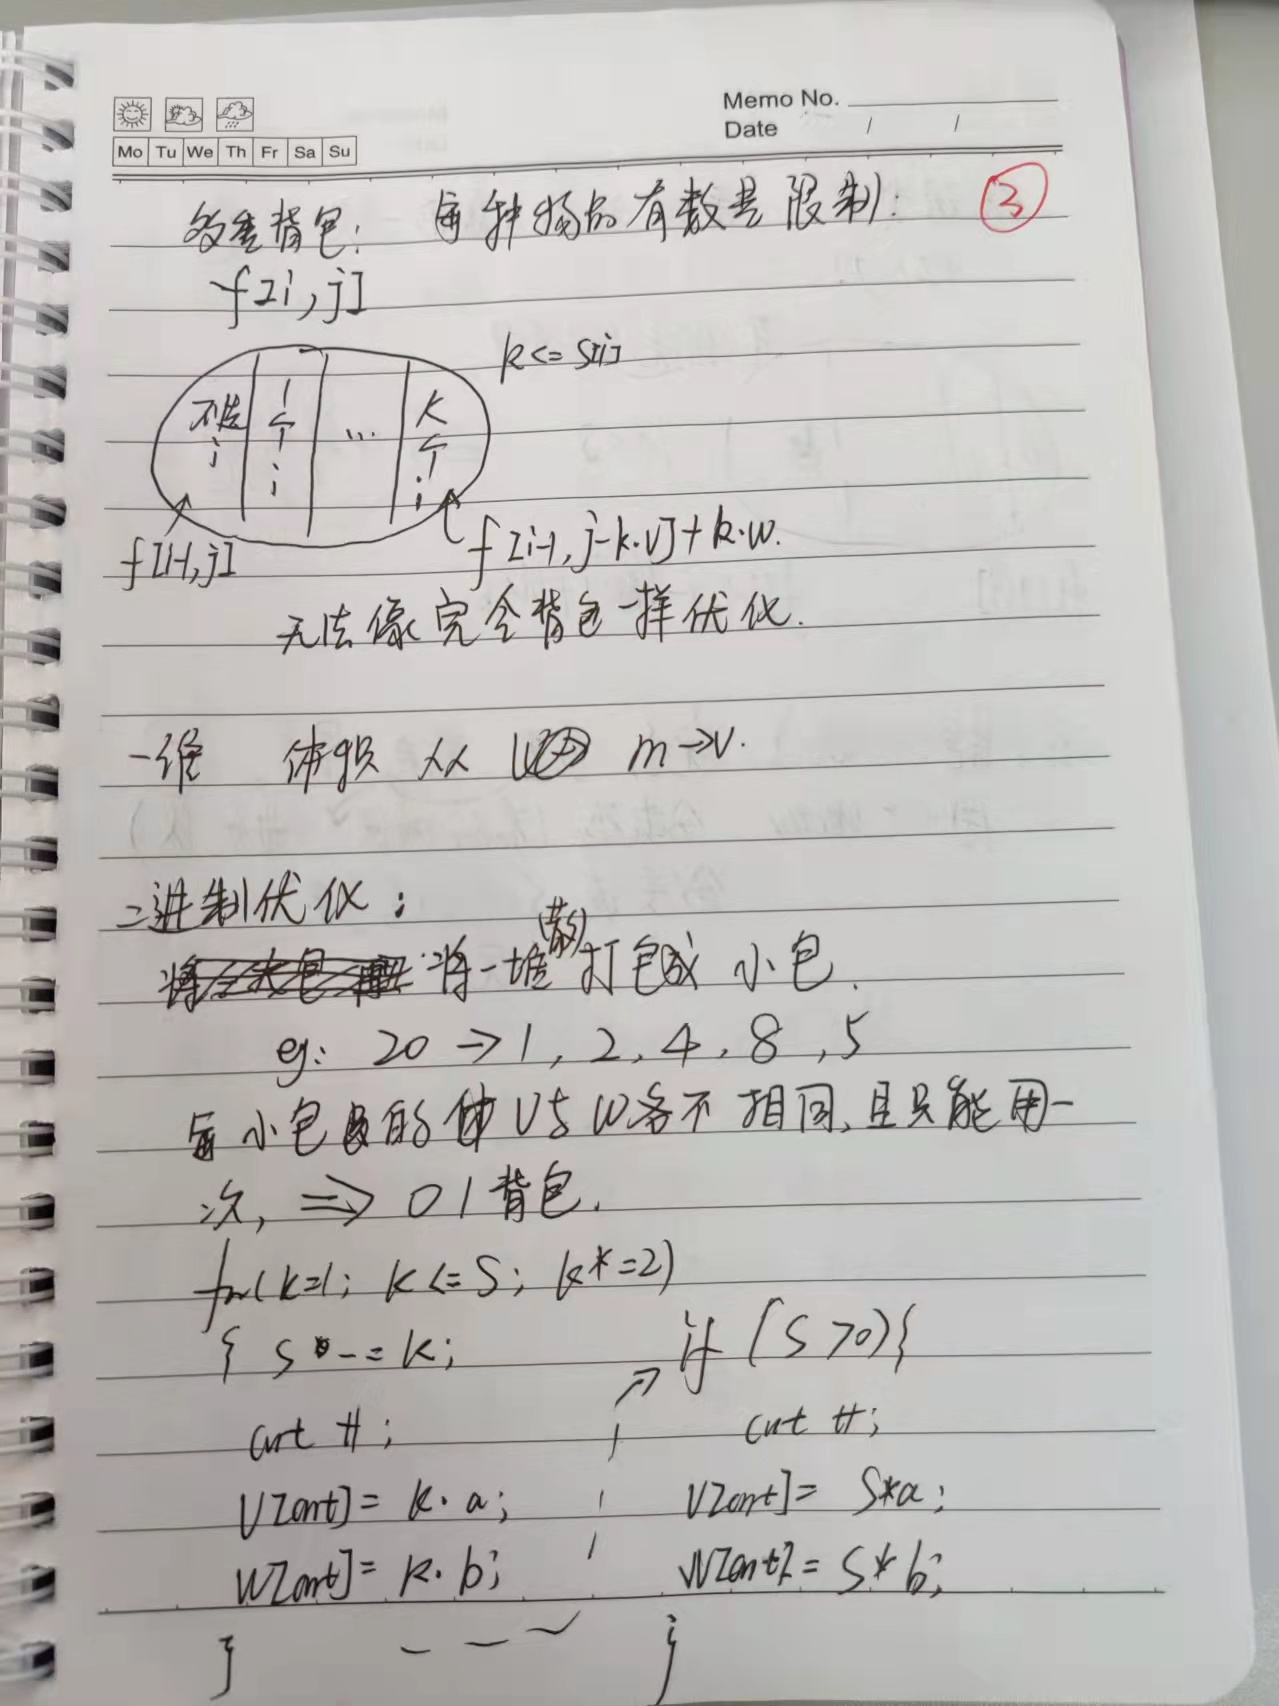 Memo No.
Date / /
Mo Tu We Th Fr Sa Su
③
多重背包: 每种物品有数量限制.
f[i, j]
k <= s[i]
不选 i
1个 i
...
k个 i
f[i-1, j]
f[i-1, j-k·v]+k·w.
无法像完全背包一样优化.
一维 体积 从 m→v.
二进制优化:
将一堆(散)打包成 小包.
eg: 20 → 1, 2, 4, 8, 5
每小包的 V与W各不相同, 且只能用一
次, ⇒ 01背包.
for(k=1; k<=S; k*=2)
{ S -= k;
cnt ++;
V[cnt] = k·a;
W[cnt] = k·b;
}
if (S>0){
cnt ++;
V[cnt] = S*a;
W[cnt] = S*b;
}